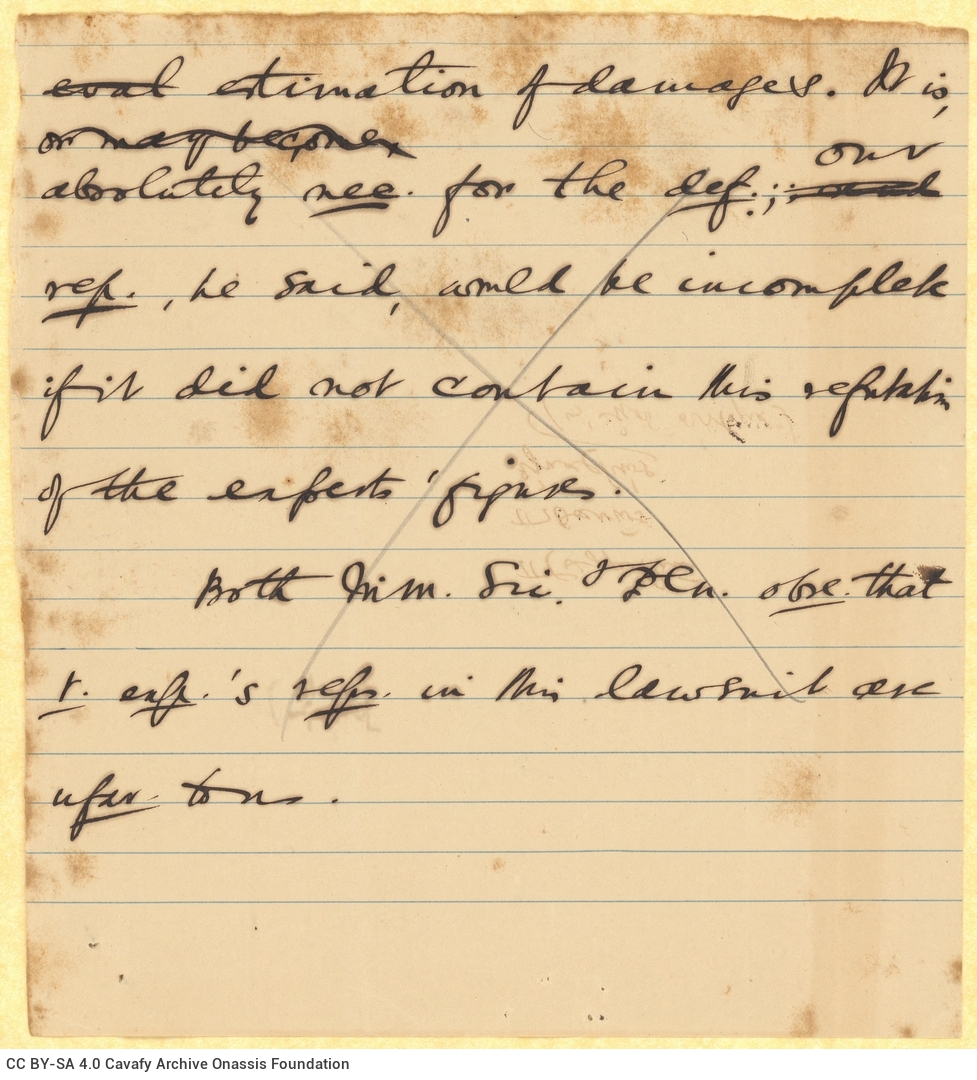 eval estimation of damages. It is,
or may become,
absolutely nec. for the def.; our
rep., he said, would be incomplete
if it did not contain this refutation
of the experts' figures.
Both Mm. Sic. & Plen. obse. that
t. exp.'s reps. in this lawsuit are
ufav. to us.
CC BY-SA 4.0 Cavafy Archive Onassis Foundation